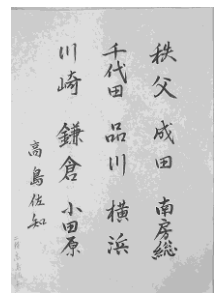 秩父 成田 南房総
千代田 品川 横浜
川崎 鎌倉 小田原
高島佐知